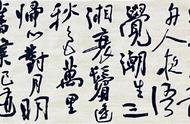 舟人夜語
覺潮生三
湘衰鬢逢
秋色萬里
歸心對月明
舊業已